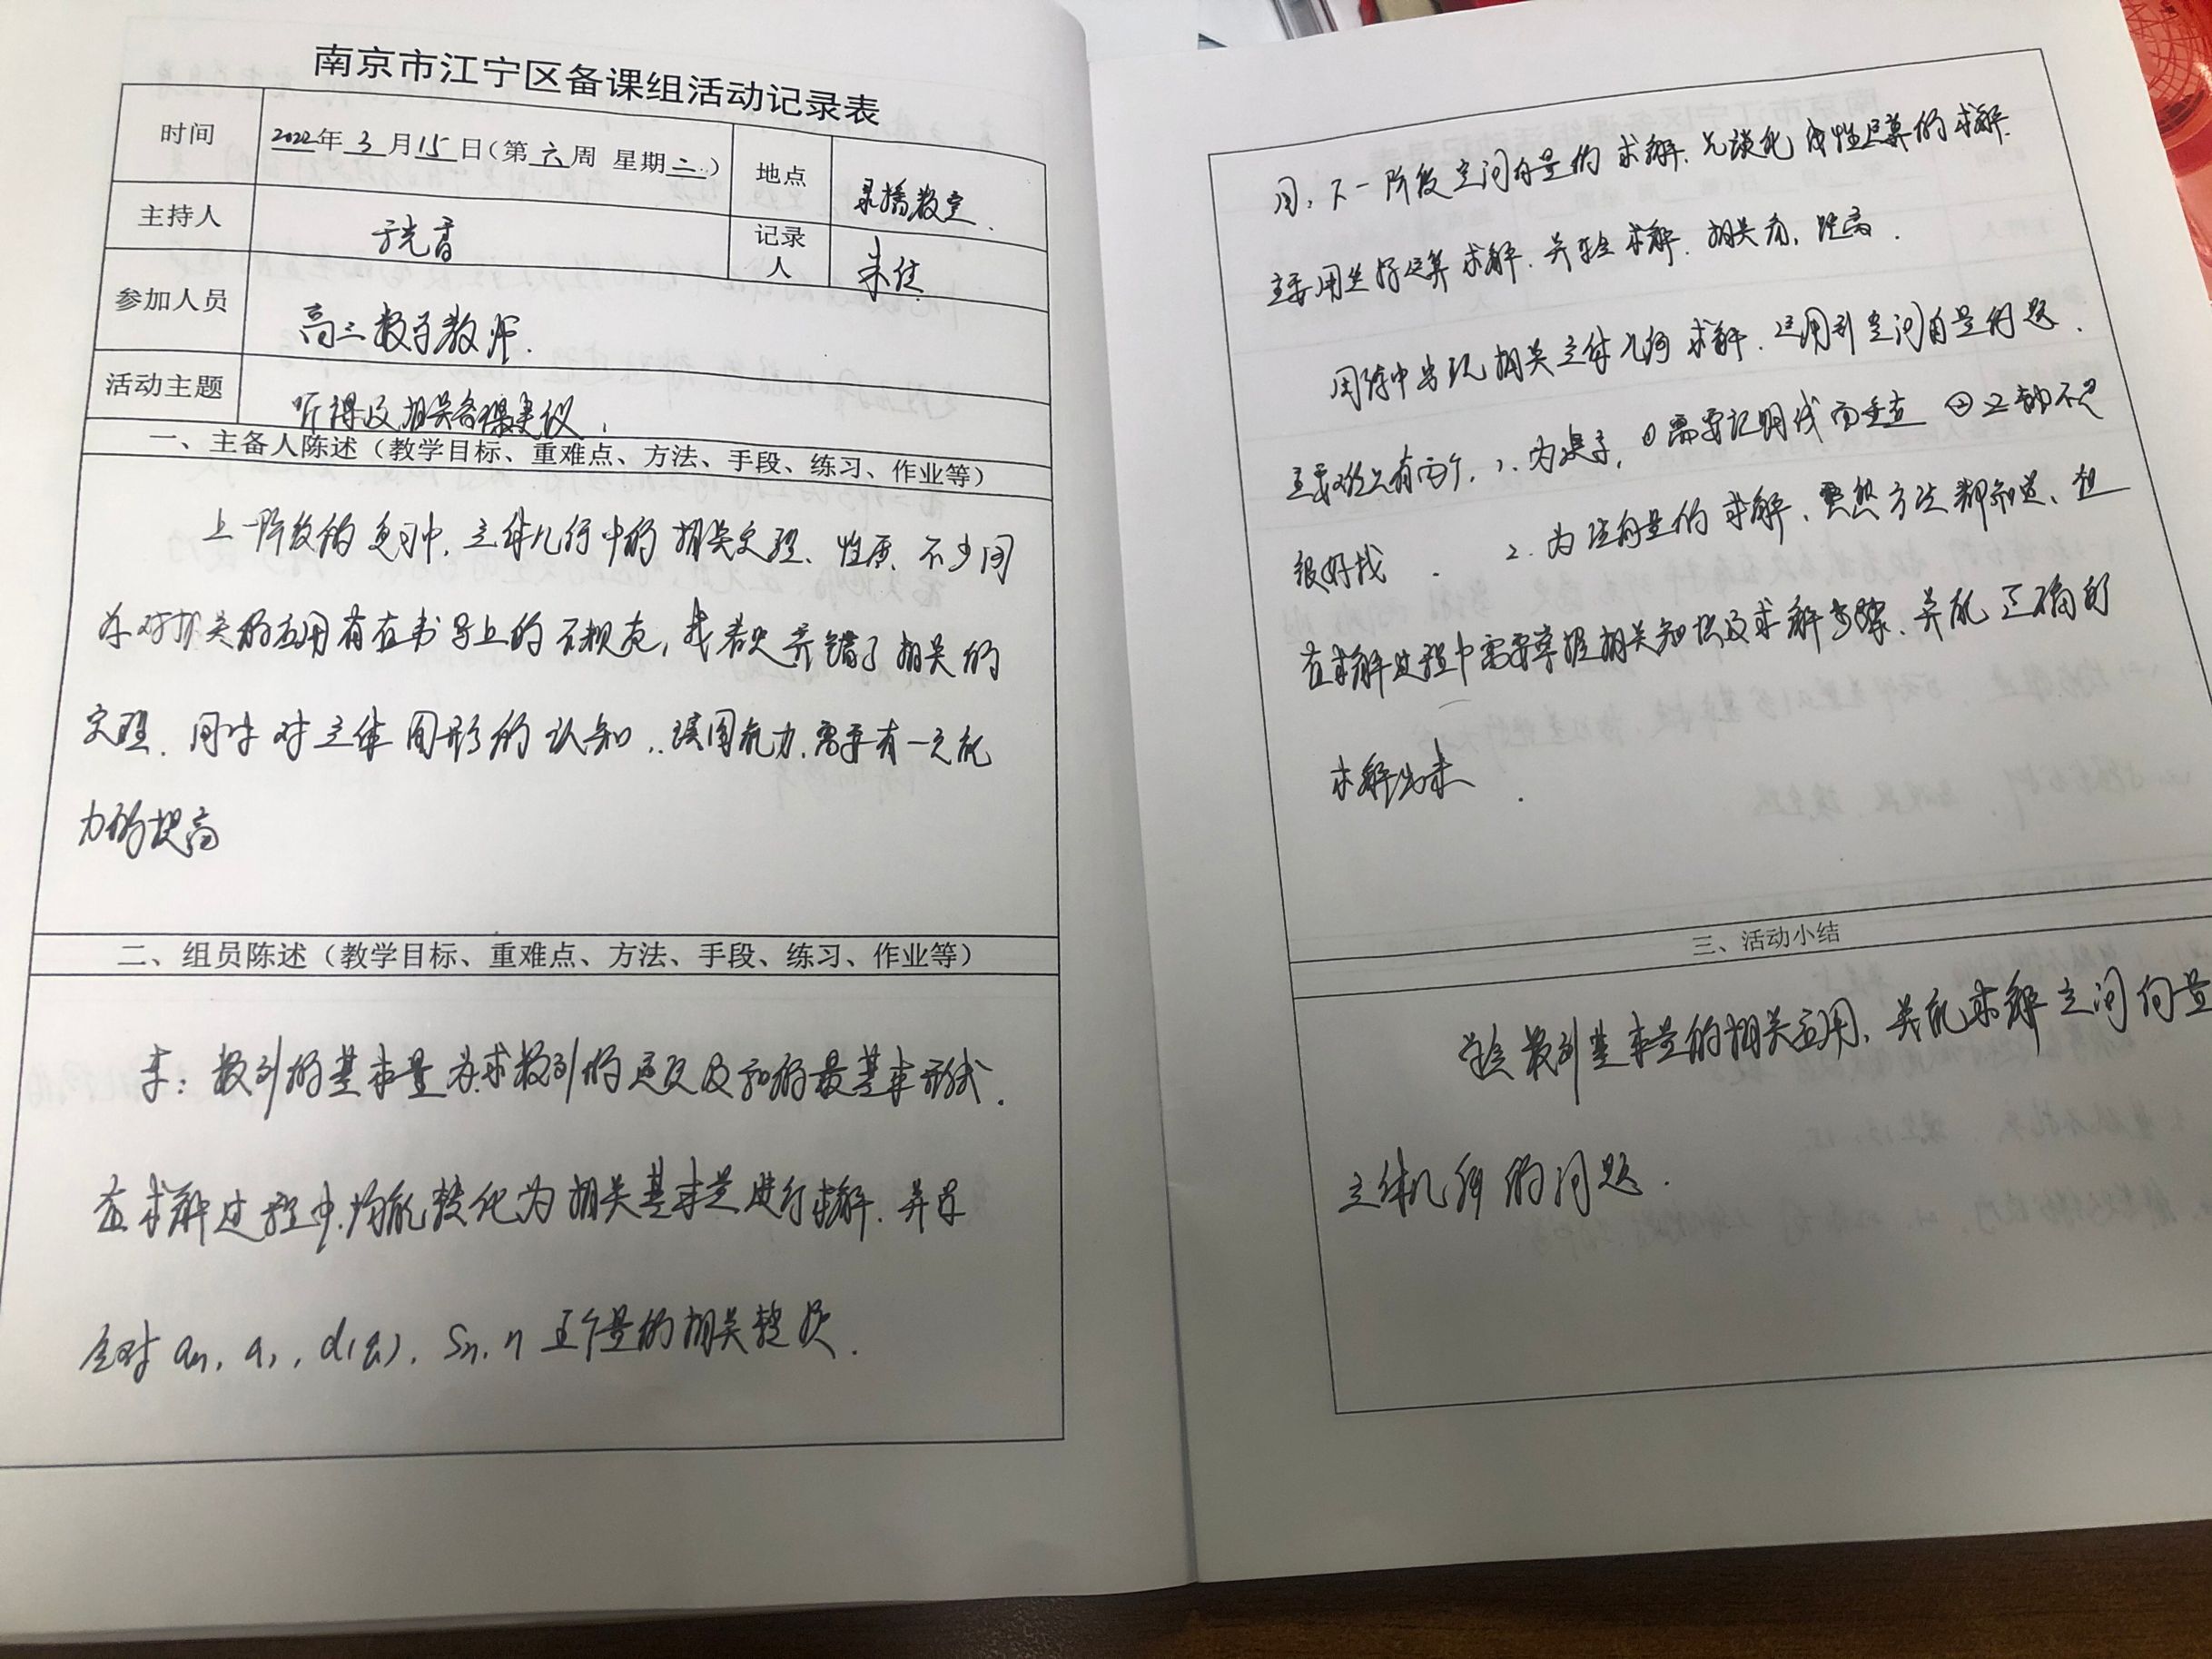 南京市江宁区备课组活动记录表
时间 2022年3月15日(第六周 星期二) 地点 录播教室.
主持人 于光音 记录人 朱佳
参加人员 高三数学教师.
活动主题 听课及相关备课建议.
一、主备人陈述（教学目标、重难点、方法、手段、练习、作业等）
上一阶段的复习中, 立体几何中的相关定理、性质、不少同
学对相关的应用有在书写上的不规范, 或者 弄错了相关的
定理. 同时对立体图形的认知, 读图能力, 需要有一定能
力的提高
二、组员陈述（教学目标、重难点、方法、手段、练习、作业等）
李: 数列的基本量为求数列的 及和的最基本形式.
在求解过程中, 均能转化为相关基本量进行求解. 并
会对 an, a1, d(q), Sn, n 五个量的相关转换.
周: 下一阶段空间向量的求解. 先 线性运算的求解.
主要用坐标运算求解. 并会求解. 相关角, 距离.
周练中出现相关立体几何求解. 运用到空间向量问题.
主要难点有两个, 1. 为建系, ①需要证明线面垂直 ② 都不是
很好找. 2. 为法向量的求解, 虽然方法都知道, 但
在求解过程中需要掌握相关知识及求解步骤. 并能正确的
求解出来.
三、活动小结
学会数列基本量的相关应用, 并能求解空间向量
立体几何的问题.